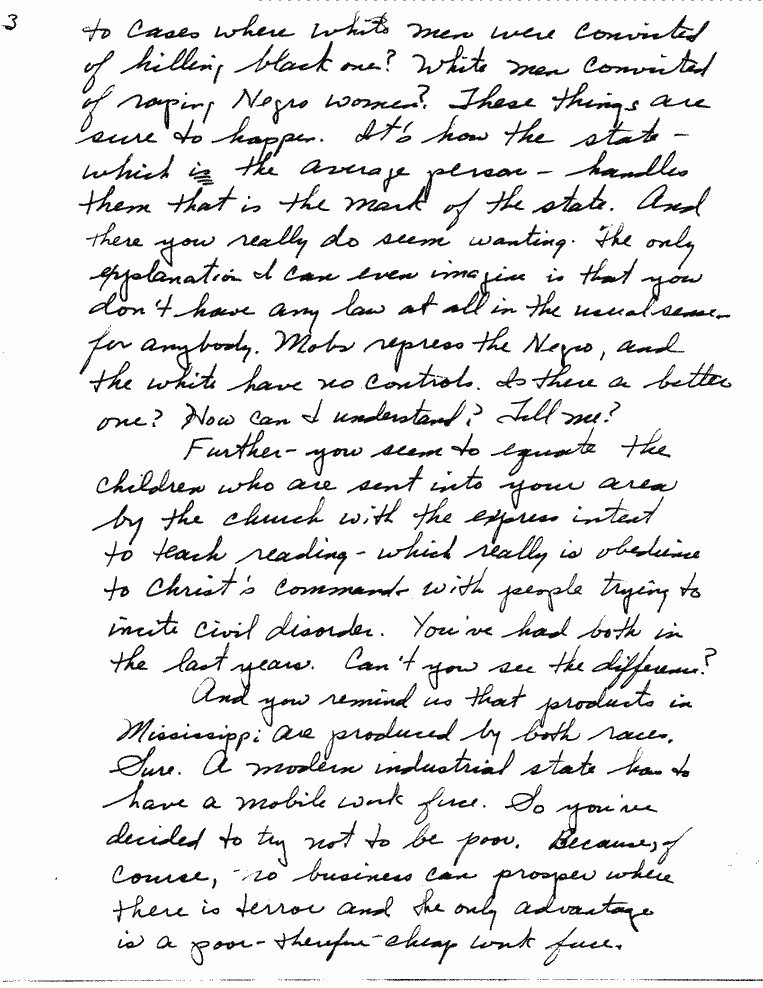 3
to cases where white men were convicted
of killing black one? White men convicted
of raping Negro women? These things are
sure to happen. It's how the state -
which is the average person - handles
them that is the mark of the state. And
there you really do seem wanting. The only
explanation I can even imagine is that you
don't have any law at all in the usual sense -
for anybody. Mobs repress the Negro, and
the white have no controls. Is there a better
one? How can I understand? Tell me?
Further - you seem to equate the
children who are sent into your area
by the church with the express intent
to teach reading - which really is obedience
to Christ's command - with people trying to
incite civil disorder. You've had both in
the last years. Can't you see the difference?
And you remind us that products in
Mississippi are produced by both races.
Sure. A modern industrial state has to
have a mobile work force. So you've
decided to try not to be poor. Because, of
course, no business can prosper where
there is terror and the only advantage
is a poor - therefore - cheap work force.